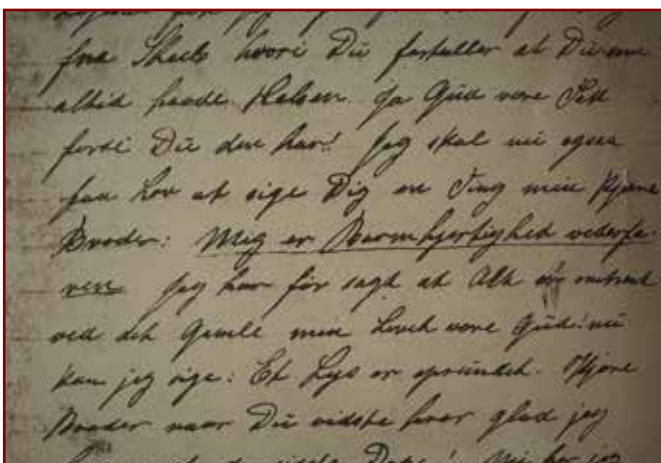 fra Skeels hvori Du fortæller at Du nu
altid havde Helsen. Ja Gud være
fordi Du den har! Jeg skal nu ogsaa
faa Lov at sige Dig en Ting min Kjære
Broder: Mig er Barmhjertighed vederfa-
ren. Jeg har før sagt at Alt er omtrent
ved det Gamle men Lovet være Gud! nu
kan jeg sige: Et Lys er oprundet. Kjære
Broder naar Du vidste hvor glad jeg
sidste Dage! Nu har jeg